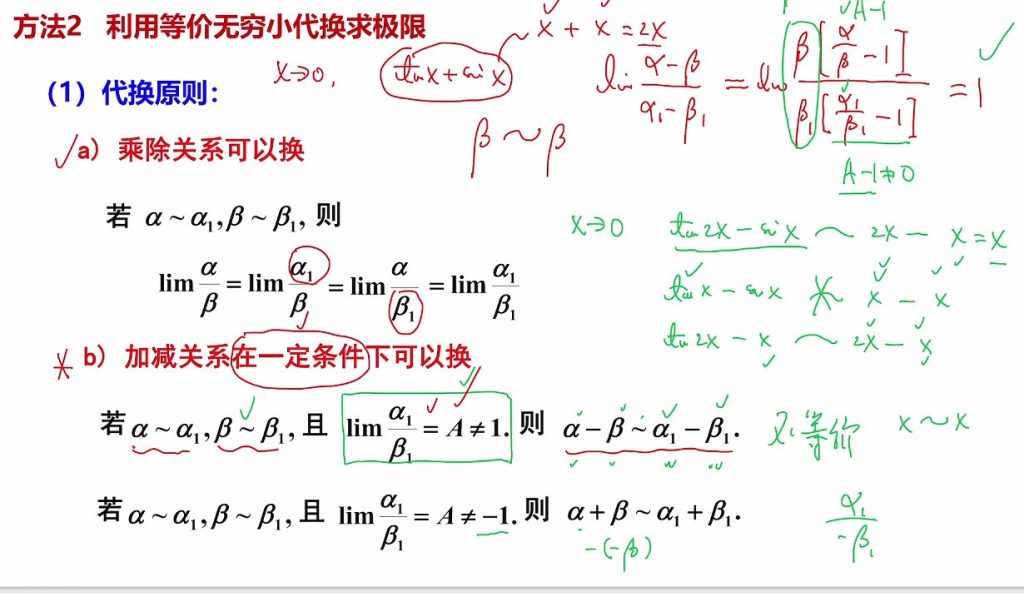 方法2 利用等价无穷小代换求极限
x→0, tan x + sin x ~ x + x = 2x
(1) 代换原则:
lim (α-β)/(α₁-β₁) = lim β[α/β -1]/β₁[α₁/β₁ -1] = 1
A-1
A-1≠0
a) 乘除关系可以换
β ~ β
若 α ~ α₁, β ~ β₁, 则
lim α/β = lim α₁/β = lim α/β₁ = lim α₁/β₁
x→0 tan 2x - sin x ~ 2x - x = x
tan x - sin x x - x
tan 2x - x ~ 2x - x
b) 加减关系在一定条件下可以换
若 α ~ α₁, β ~ β₁, 且 lim α₁/β₁ = A ≠ 1. 则 α - β ~ α₁ - β₁. 不等价 x ~ x
若 α ~ α₁, β ~ β₁, 且 lim α₁/β₁ = A ≠ -1. 则 α + β ~ α₁ + β₁.
-(-β)
α₁/-β₁